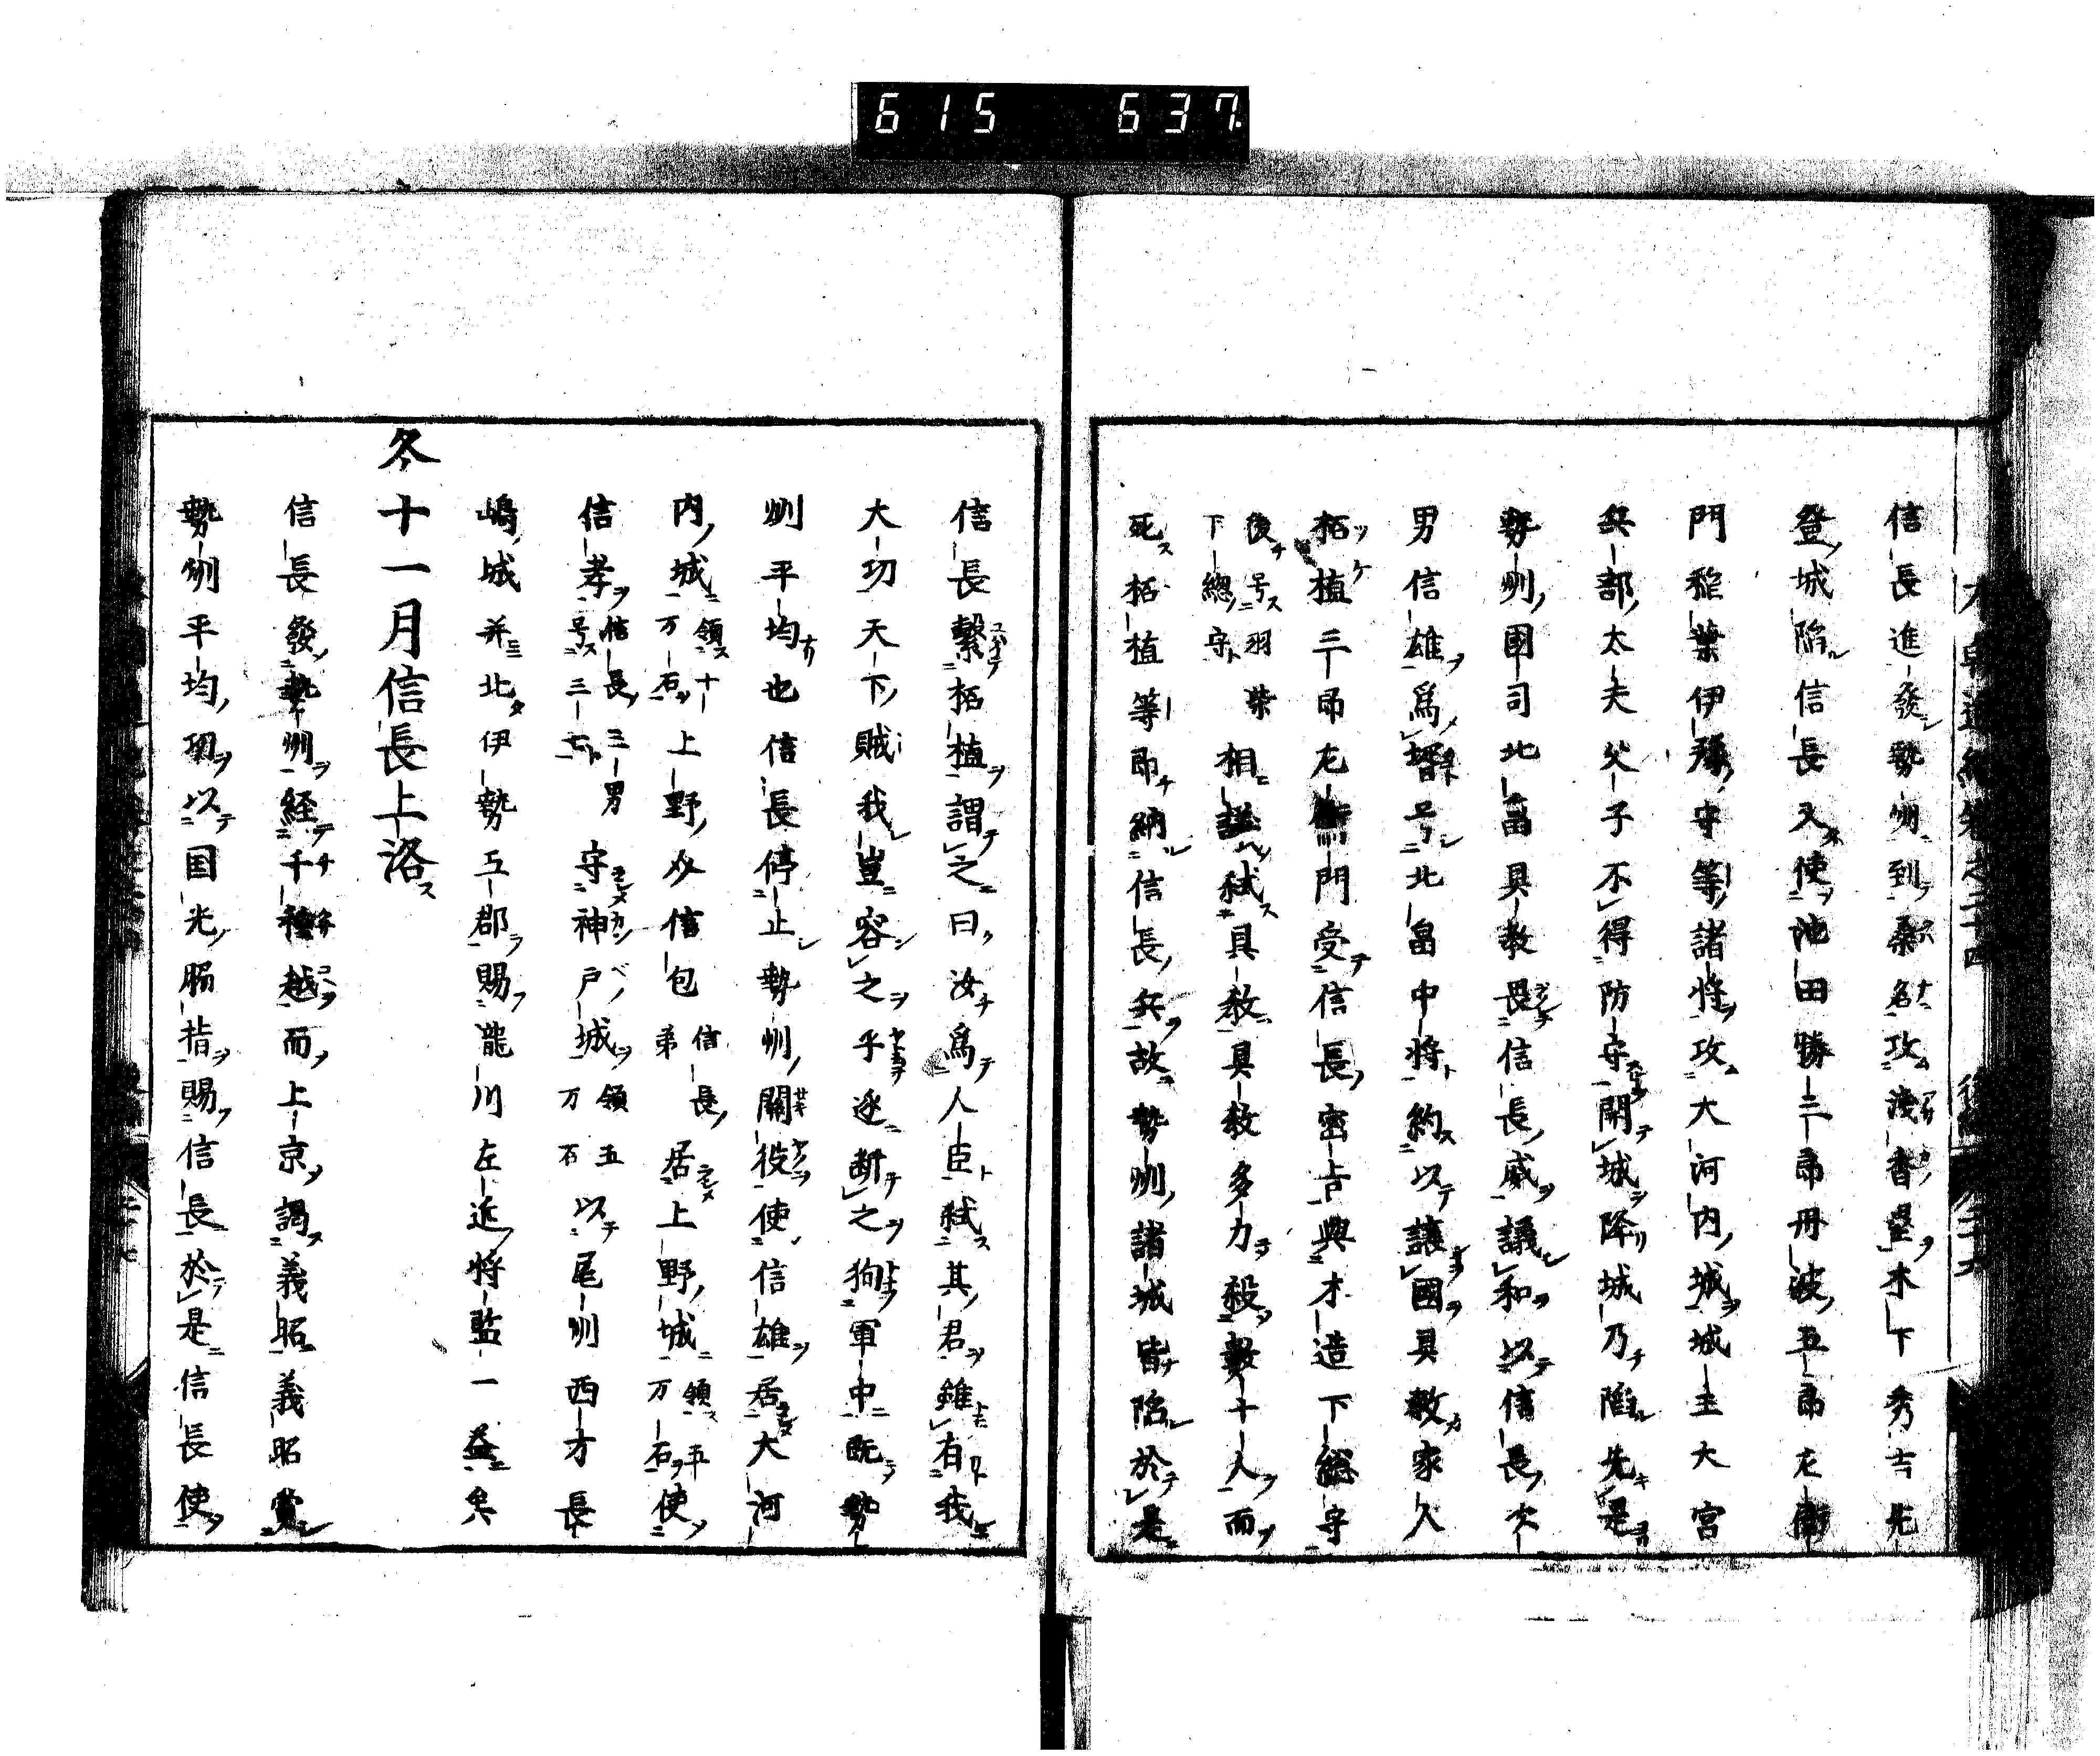 615 637
信長進發勢州到桑名攻淺香壘木下秀吉先
登城陷信長又使池田勝三郎丹波五郎左衛
門稲葉伊豫守等諸將攻大河内城城主大宮
兵部太夫父子不得防守開城降城乃陷先是
勢州國司北畠具教畏信長威議和以信長次
男信雄爲壻号北畠中將約以讓國具教家人
柘植三郎左衛門受信長密旨與木造下総守
後号羽柴
下總守
相議弑具教具教多力殺數十人而
死柘植等即納信長兵故勢州諸城皆陷於是
信長繫柘植謂之曰汝爲人臣弑其君雖有我
大功天下賊我豈容之乎逐断之狥軍中既勢
州平均也信長停止勢州關役使信雄居大河
内城領十万石上野以信包信長弟居上野城領五万石使
信孝信長三男号三七守神戸城領五万石以尾州西方長
嶋城并北伊勢五郡賜瀧川左近將監一益矣
冬十一月信長上洛
信長發勢州経千種越而上京謁義昭義昭賞
勢州平均功以国光脇指賜信長於是信長使